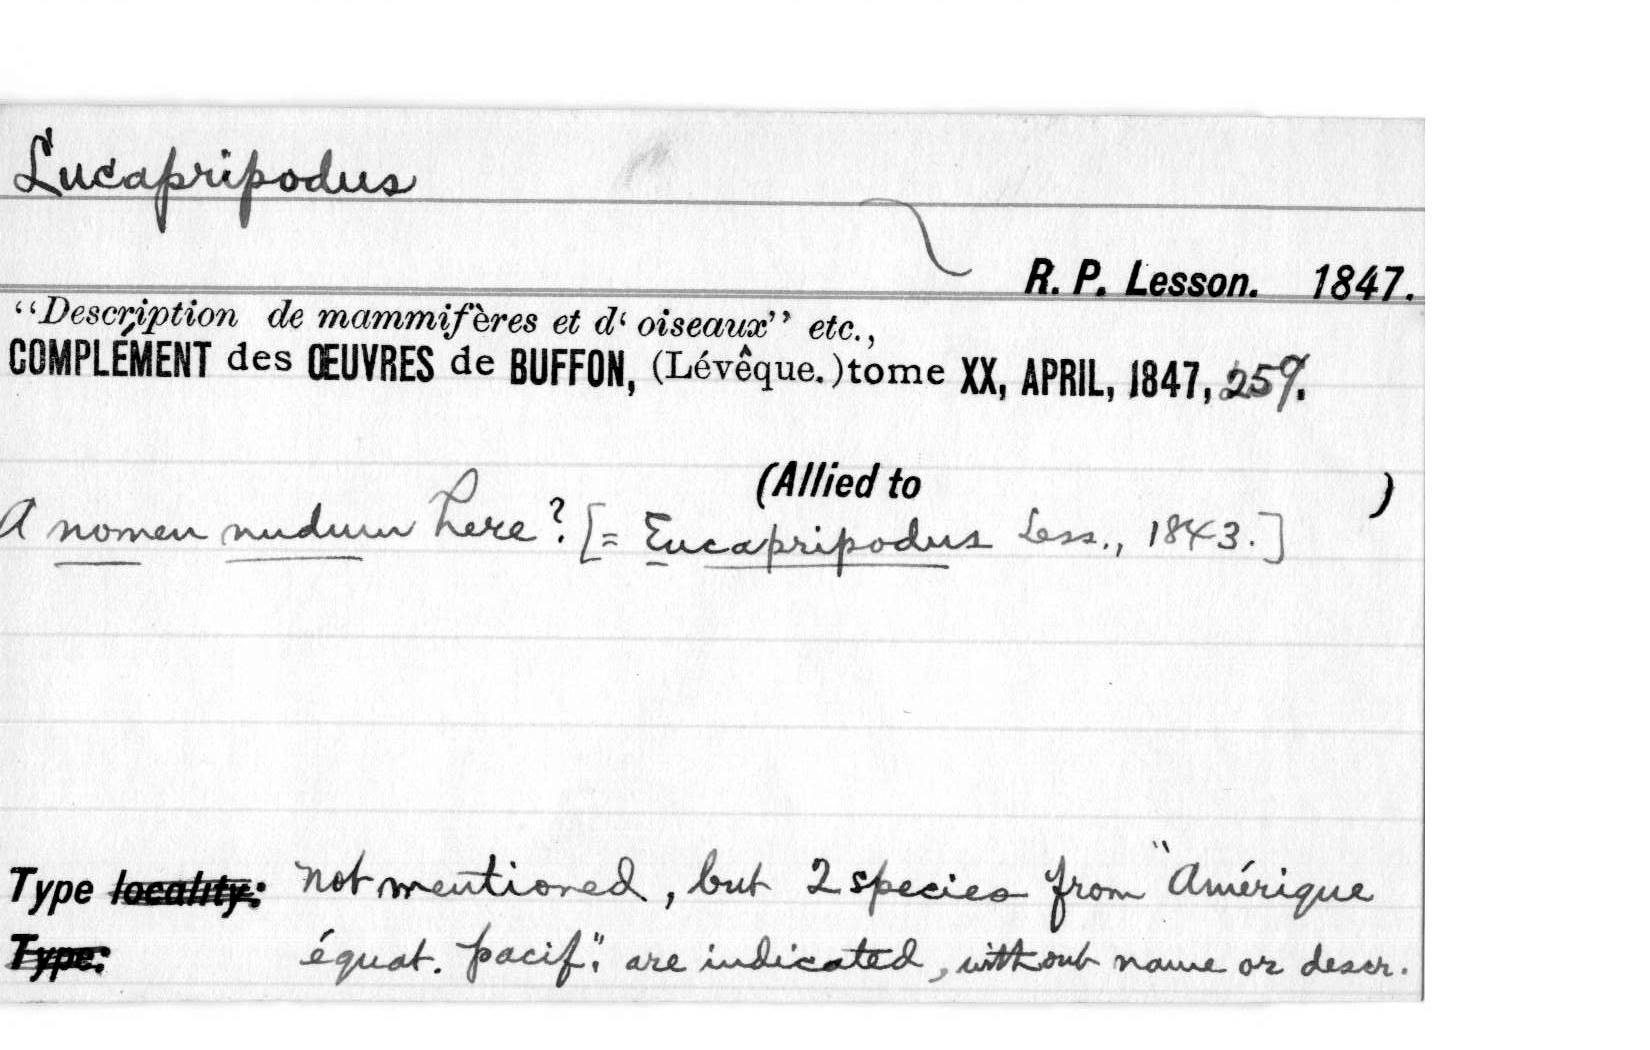 Lucapripodus
R. P. Lesson. 1847.
“Description de mammifères et d‘ oiseaux” etc.,
COMPLÉMENT des ŒUVRES de BUFFON, (Lévêque.) tome XX, APRIL, 1847, 259.
(Allied to )
A nomen nudum here? [= Eucapripodus Less., 1843.]
Type locality: not mentioned, but 2 species from "Amérique
Type: équat. pacif." are indicated, without name or descr.